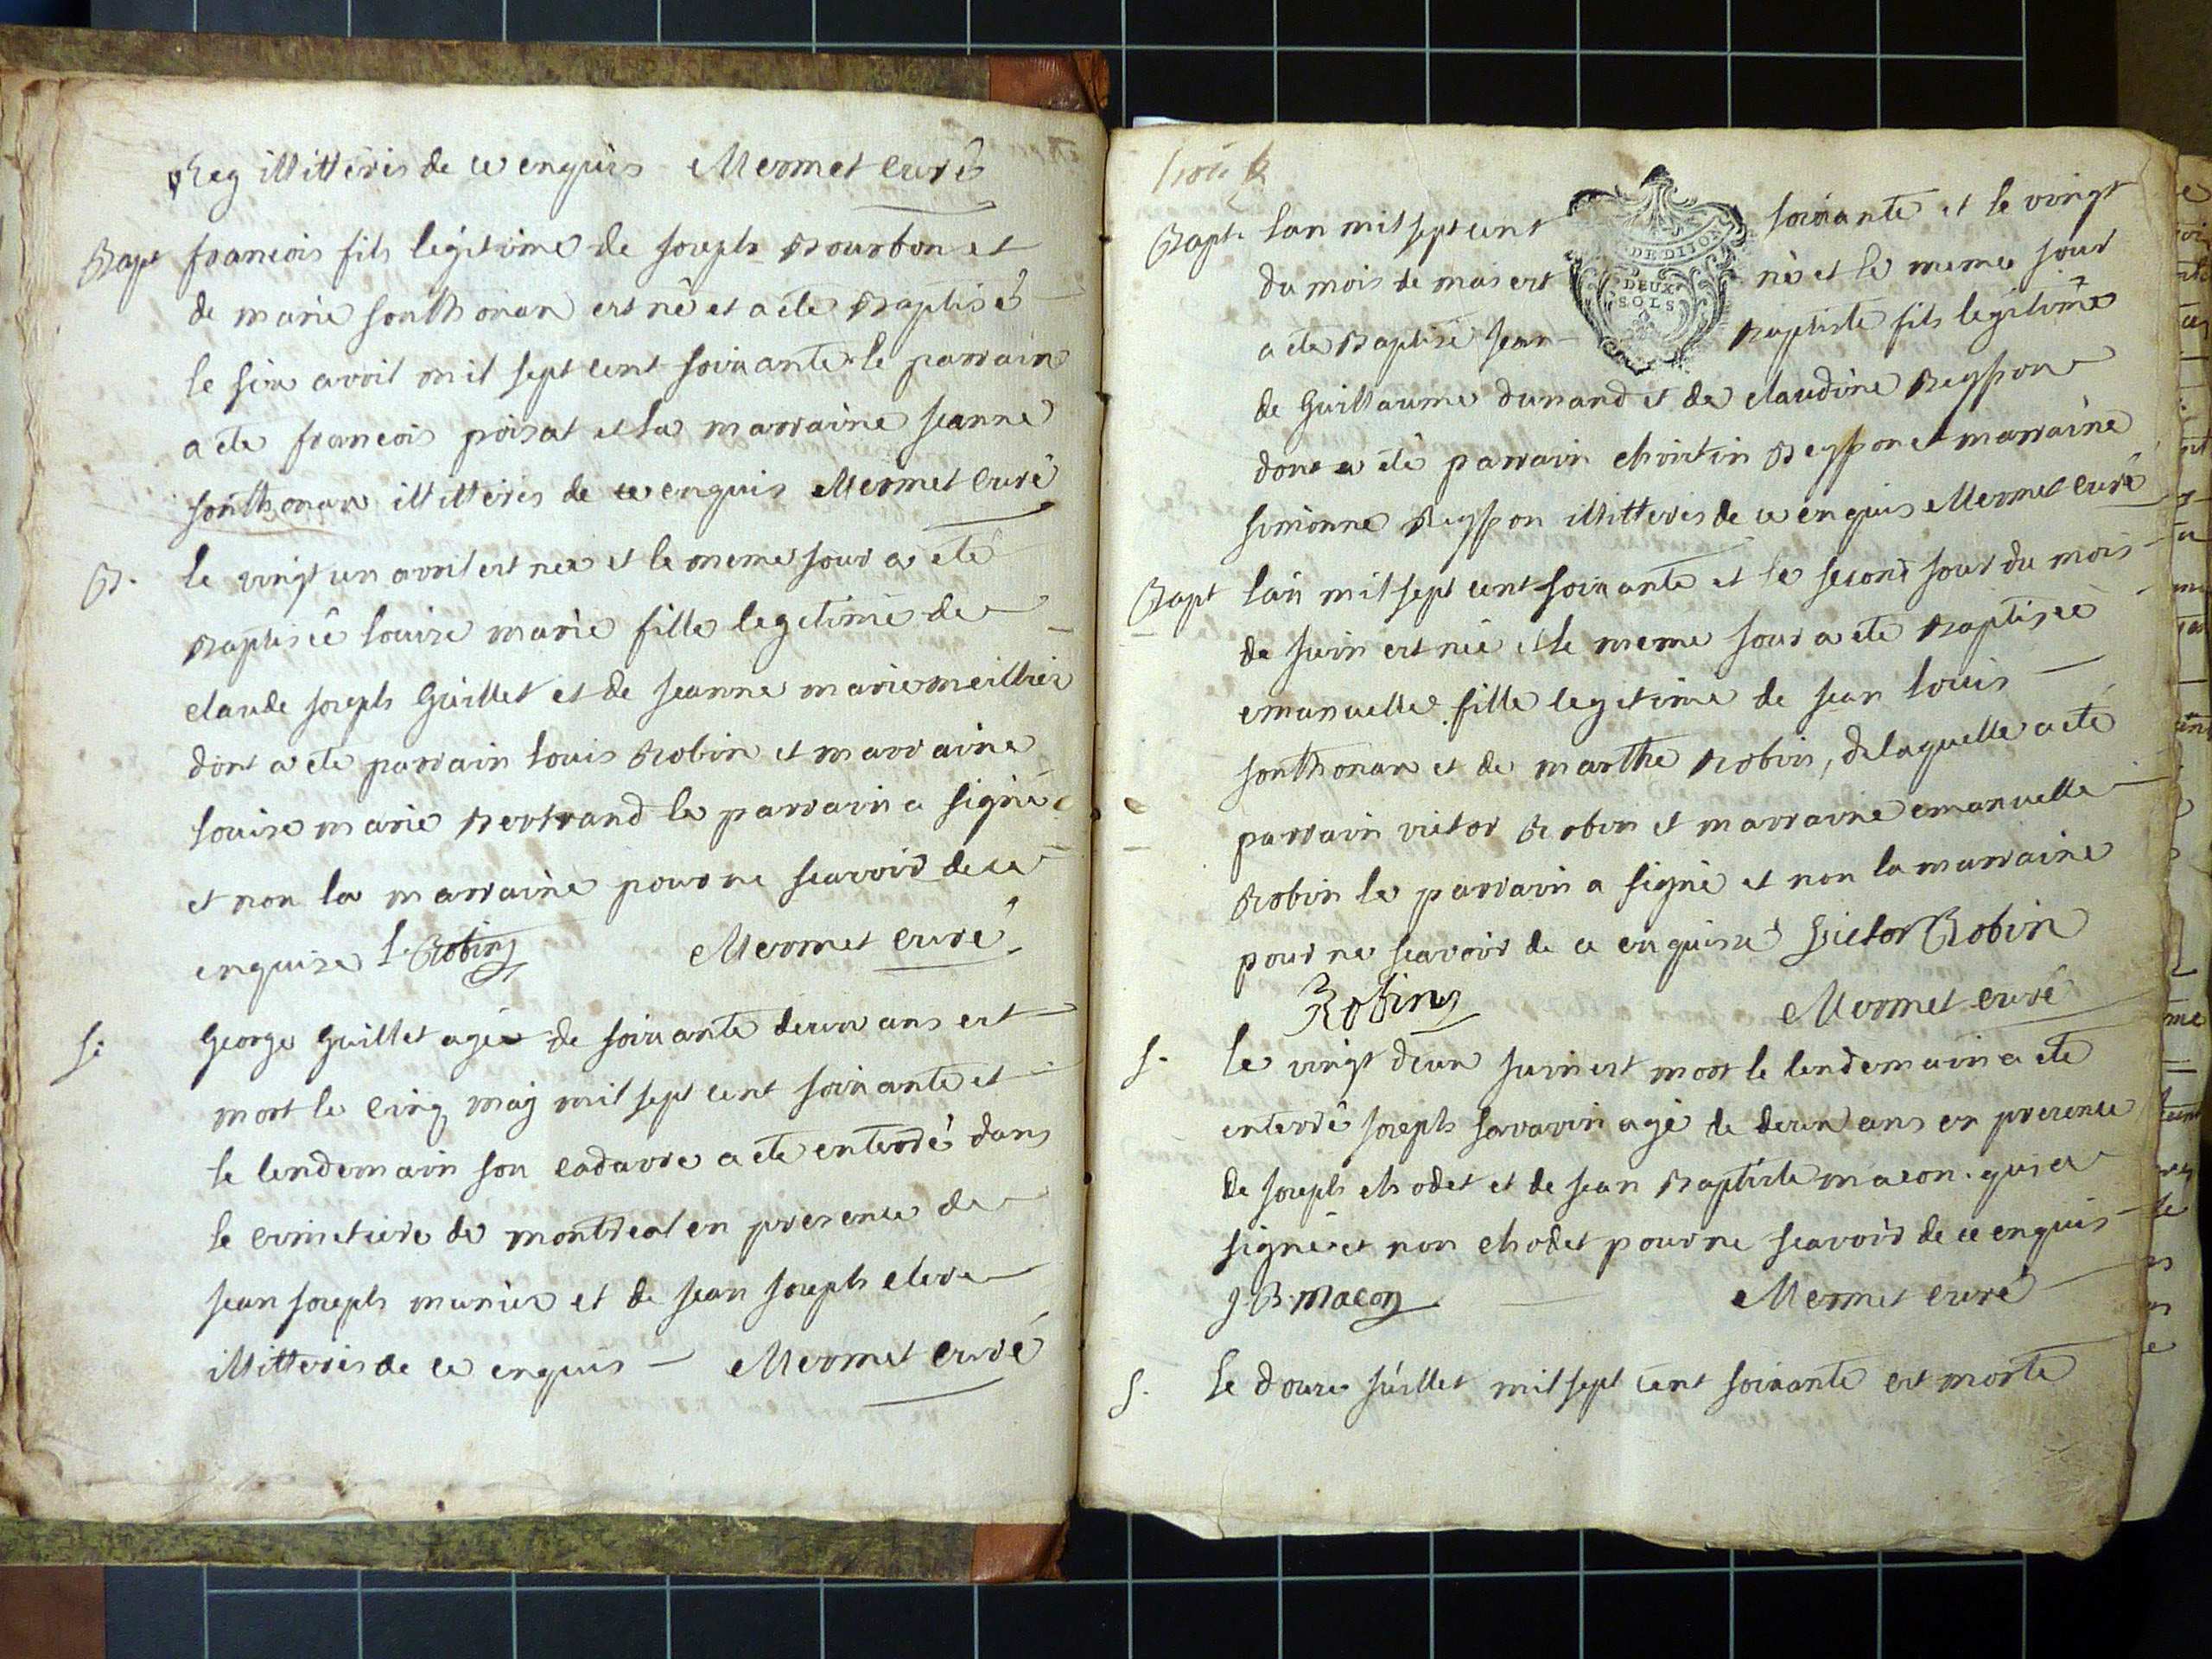 Reg illitteris de ce enquis Mermet curé
Bapt francois fils légitime de joseph Bourbon et
de marie sonthonax est né et a ete Baptisé
le six avril mil sept cent soixante le parrain
a ete francois poisat et la marraine jeanne
sonthonax illitteris de ce enquis Mermet curé
B. le vingt un avril est nee et le meme jour a eté
Baptisée louise marie fille legitime de
claude joseph Guillet et de jeanne marie meillier
dont a ete parrain louis Robin et marraine
louise marie Bertrand le parrain a signé
et non la marraine pour ne scavoir de ce
enquise l. Robin Mermet curé
S: George Guillet agé de soixante deux ans est
mort le cinq maj mil sept cent soixante et
le lendemain son cadavre a ete enterré dans
le cimetiere de montreal en presence de
jean joseph munier et de jean joseph clerc
illitteris de ce enquis Mermet curé
Bapt. lan mil sept cent soixante et le vingt
DE DIJON
du mois de mai est né et le meme jour
DEUX
SOLS
a ete Baptisé jean Baptiste fils legitime
de Guillaume dunand et de claudine Reypon
dont a été parrain christin Reypon et marraine
simonne Reypon illitteris de ce enquis Mermet curé
Bapt lan mil sept cent soixante et le second jour du mois
de juin est née et le meme jour a ete Baptisée
emanuelle fille legitime de jean louis
sonthonax et de marthe Robin, de laquelle a eté
parrain victor Robin et marraine emanuelle
Robin le parrain a signé et non la marraine
pour ne scavoir de ce enquise Victor Robin
Robin Mermet curé
S. le vingt deux juin est mort le lendemain a ete
enterré joseph savarin agé de deux ans en presence
de joseph chodet et de jean Baptiste macon. qui a
signé et non chodet pour ne scavoir de ce enquis
J. B. macon Mermet curé
S. le douze juillet mil sept cent soixante est morte